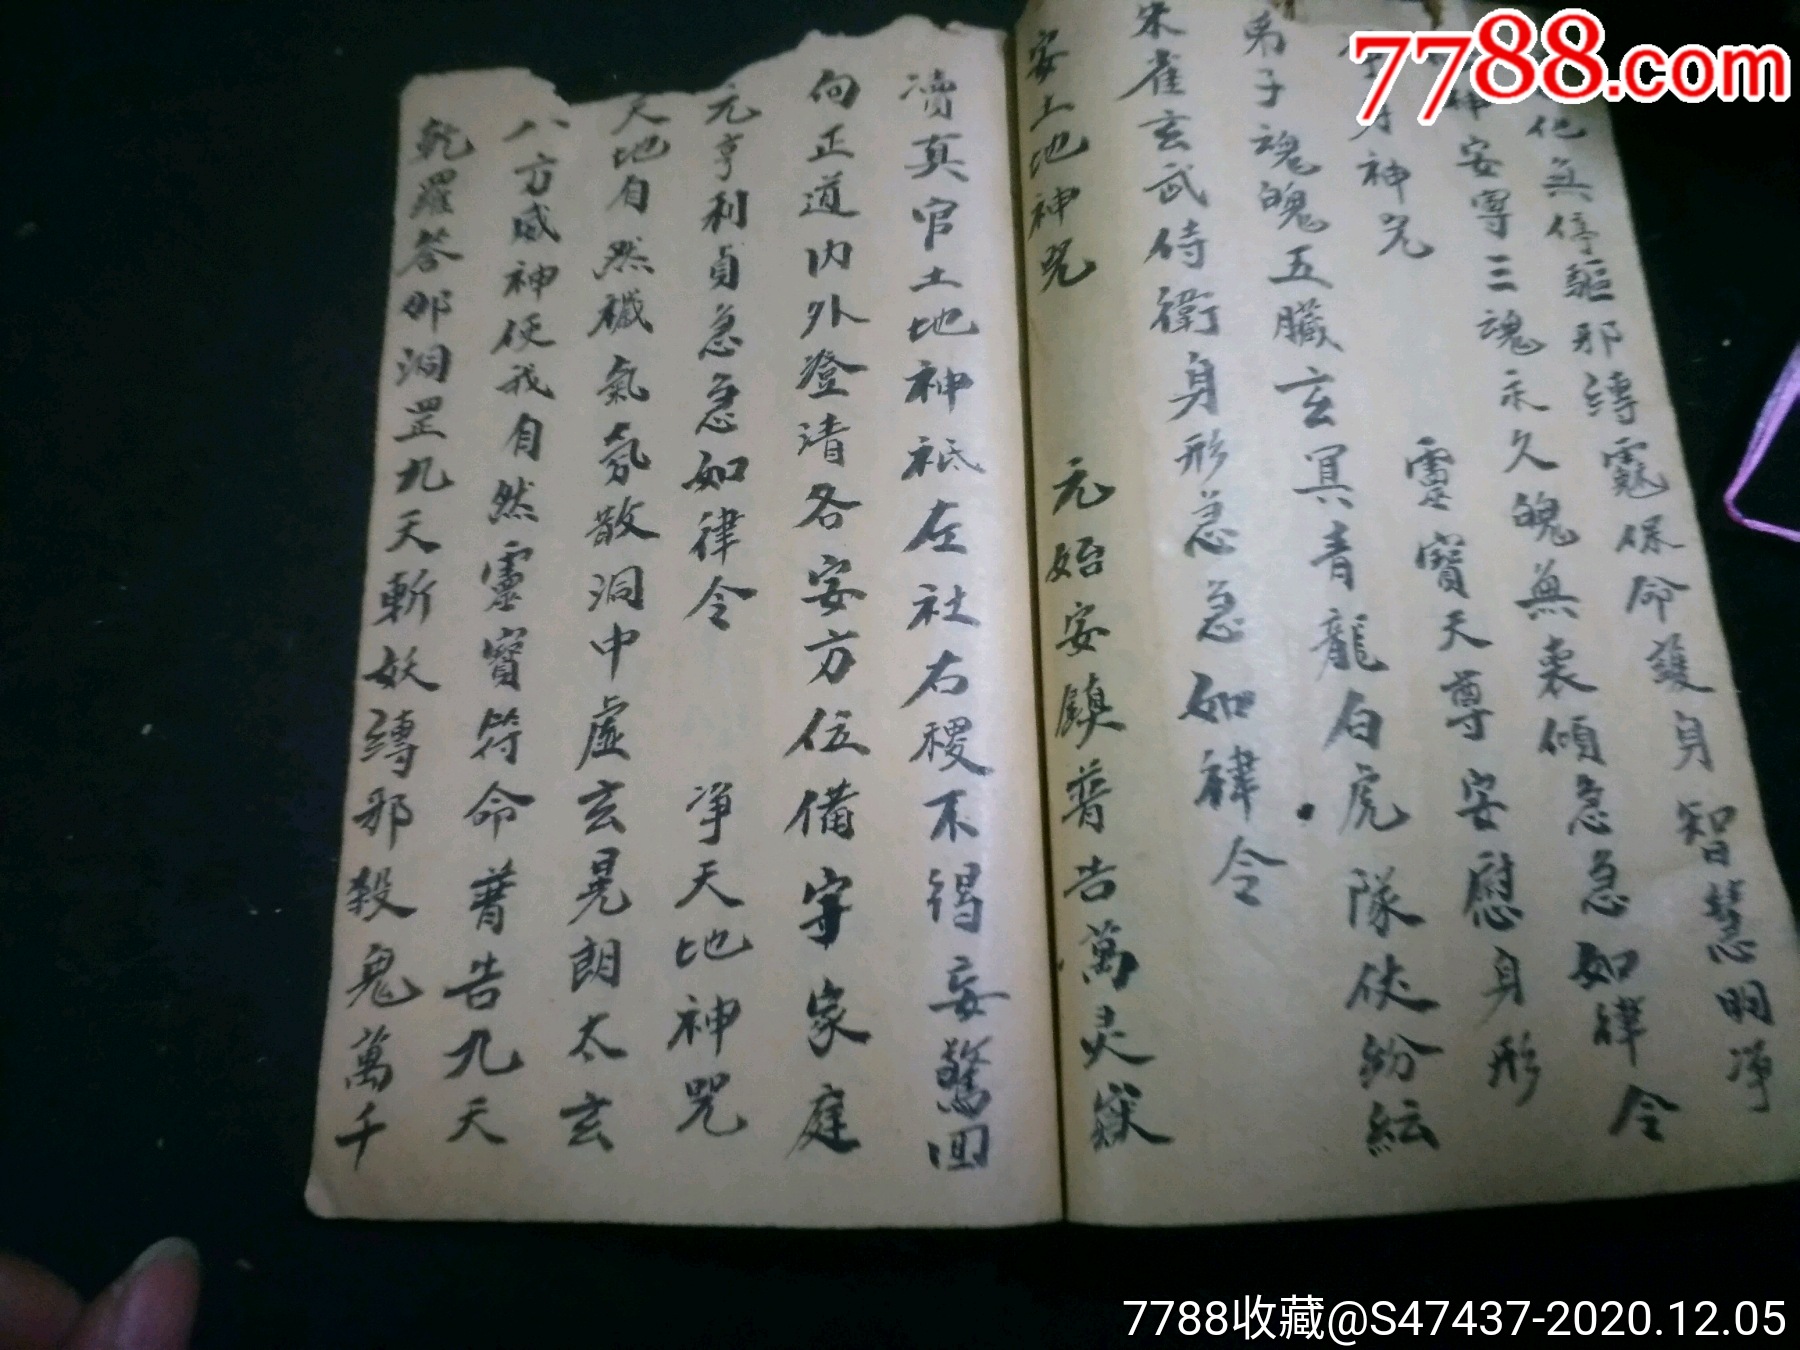 化無停驅邪縛鬽保命護身智慧明净
神安寕三魂永久魄無喪傾急急如律令
身神咒 靈寶天尊安慰身形
弟子魂魄五臓玄冥青龍白虎隊伏紛紜
朱雀玄武侍衛身形急急如律令
安土地神咒 元始安鎮普告萬灵嶽
瀆真官土地神袛左社右稷不得妄驚回
向正道内外澄清各安方位備守家庭
元亨利貞急急如律令 净天地神咒
天地自然穢氣氛散洞中虛玄晃朗太玄
八方威神使我自然靈寶符命普告九天
乾羅答那洞罡九天斬妖縛邪殺鬼萬千
7788.com
7788收藏@S47437-2020.12.05